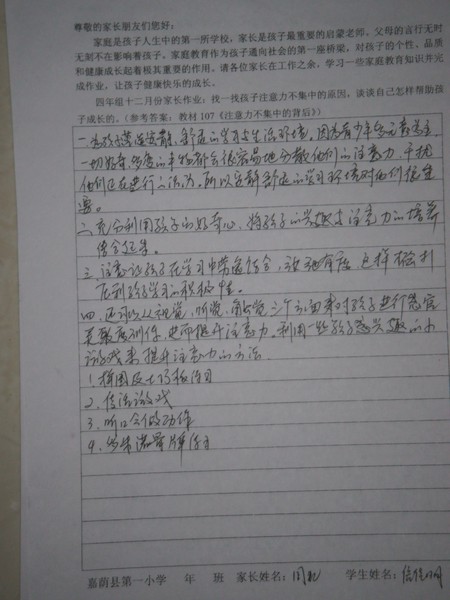 尊敬的家长朋友们您好:
家庭是孩子人生中的第一所学校,家长是孩子最重要的启蒙老师,父母的言行无时
无刻不在影响着孩子,家庭教育作为孩子通向社会的第一座桥梁,对孩子的个性、品质
和健康成长起着极其重要的作用。请各位家长在工作之余,学习一些家庭教育知识并完
成作业,让孩子健康快乐的成长。
四年组十二月份家长作业:找一找孩子注意力不集中的原因,谈谈自己怎样帮助孩
子成长的。(参考答案:教材107《注意力不集中的背后》)
一、为孩子营造安静、舒适的学习与生活环境。因为青少年
一切好奇、多变的事物都会很容易地分散他们的注意力,干扰
他们正在进行的活动。所以安静舒适的学习环境对他们很重
要。
二、充分利用孩子的好奇心,将孩子的兴趣与注意力的培养
结合起来。
三、注意让孩子在学习中劳逸结合,张弛有度,这样不会打
孩子学习的积极性。
四、还可以从视觉、听觉、触觉三个方面来对孩子进行感官
训练,进而提升注意力。利用一些孩子感兴趣的小
游戏来提升注意力的方法
1、拼图
2、传话游戏
3、听口令做动作
4、
嘉荫县第一小学 年 班 家长姓名: 学生姓名: